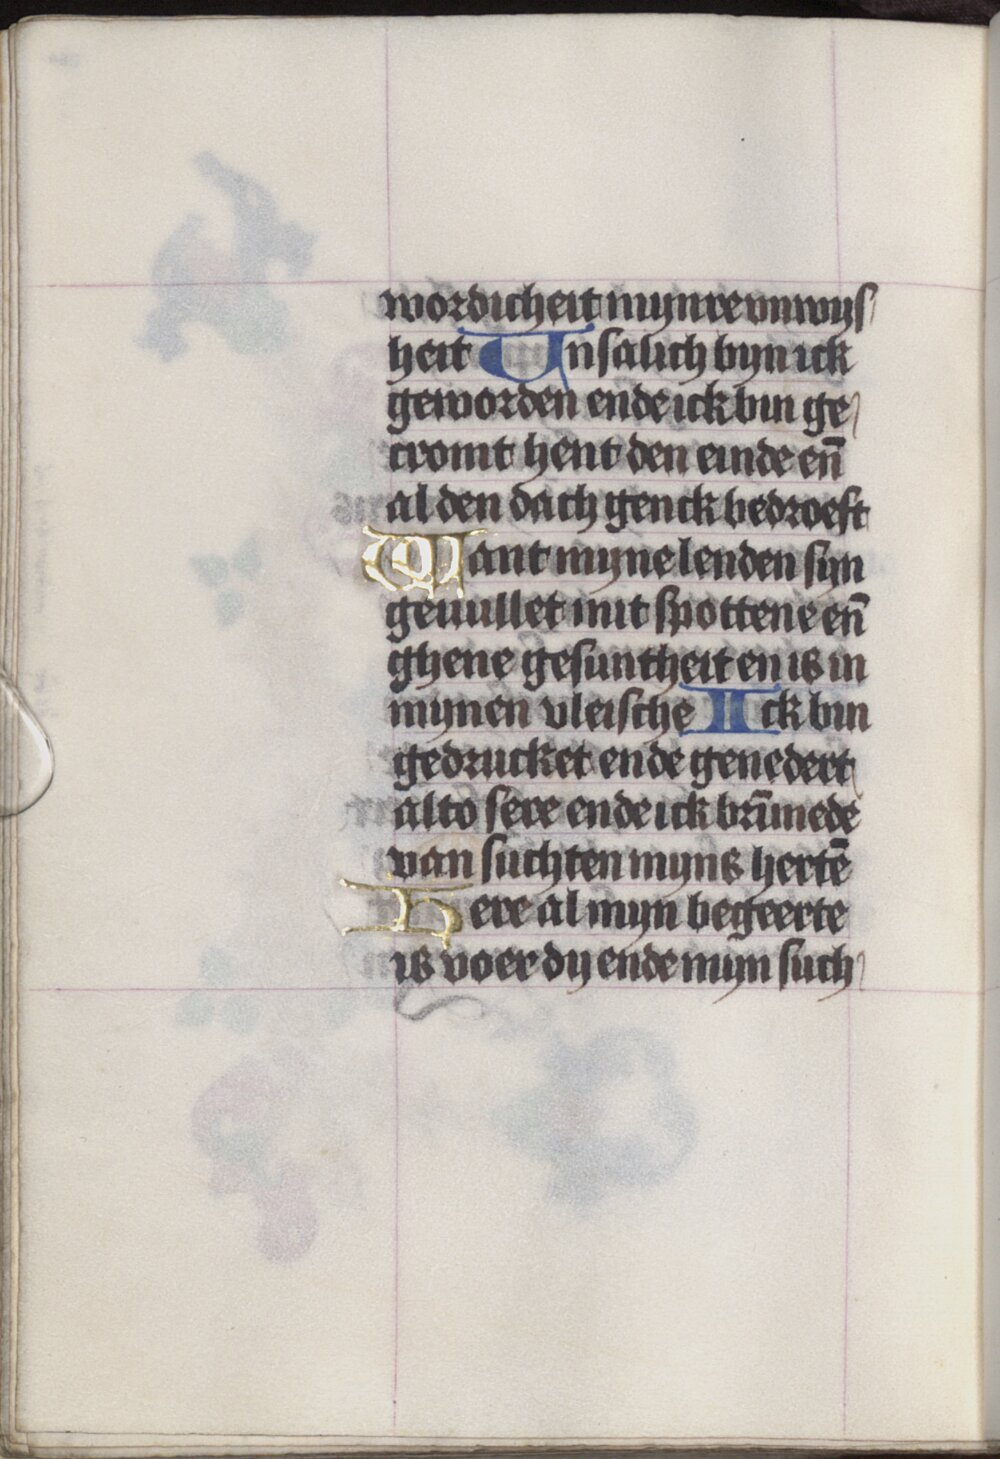 wordicheit mynre vnwijs
heit Vnsalich byn ick
geworden ende ick bin ge
cromt hent den einde eñ
al den dach genck bedroeft
Want myne lenden syn
geuullet mit spottene eñ
ghene gesuntheit en is in
mynen vleische Ick bin
gedrucket ende genedert
alto sere ende ick brūmede
van suchten myns hertē
Here al myn begeerte
is voer dy ende myn such